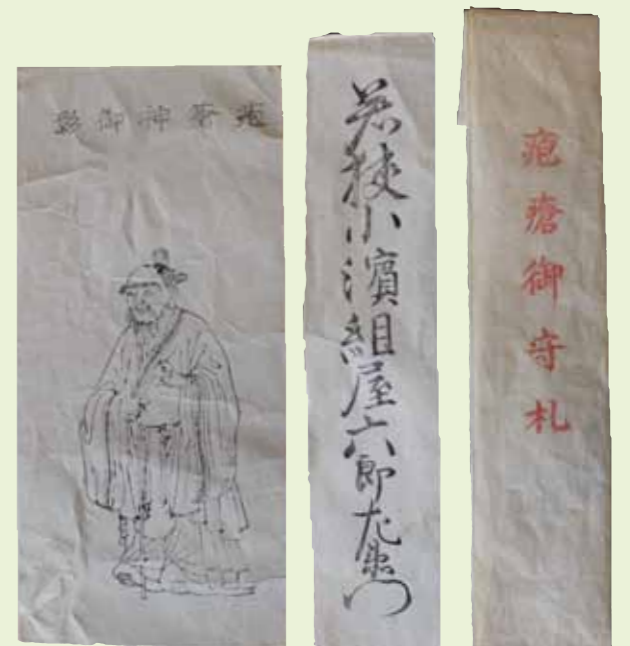 疱瘡神御影
若狭小濱組屋六郎左衛門
疱瘡御守札